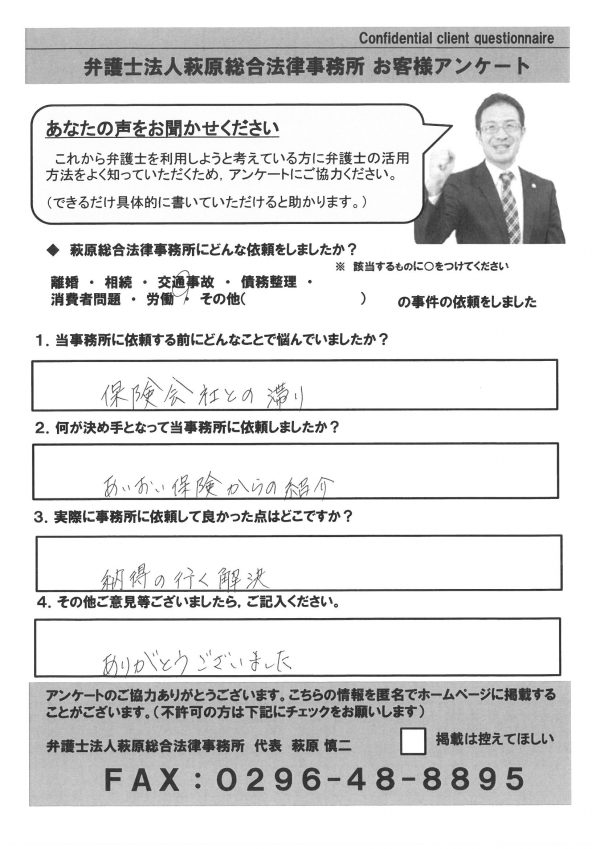 Confidential client questionnaire
弁護士法人萩原総合法律事務所 お客様アンケート
あなたの声をお聞かせください
これから弁護士を利用しようと考えている方に弁護士の活用
方法をよく知っていただくため，アンケートにご協力ください。
（できるだけ具体的に書いていただけると助かります。）
◆ 萩原総合法律事務所にどんな依頼をしましたか？
※ 該当するものに○をつけてください
離婚 ・ 相続 ・ 交通事故 ・ 債務整理 ・
消費者問題 ・ 労働 ・ その他（ ） の事件の依頼をしました
１．当事務所に依頼する前にどんなことで悩んでいましたか？
保険会社との滞り
２．何が決め手となって当事務所に依頼しましたか？
あいおい保険からの紹介
３．実際に事務所に依頼して良かった点はどこですか？
納得の行く解決
４．その他ご意見等ございましたら，ご記入ください。
ありがとうございました
アンケートのご協力ありがとうございます。こちらの情報を匿名でホームページに掲載する
ことがございます。（不許可の方は下記にチェックをお願いします）
弁護士法人萩原総合法律事務所 代表 萩原 慎二
掲載は控えてほしい
ＦＡＸ：０２９６－４８－８８９５